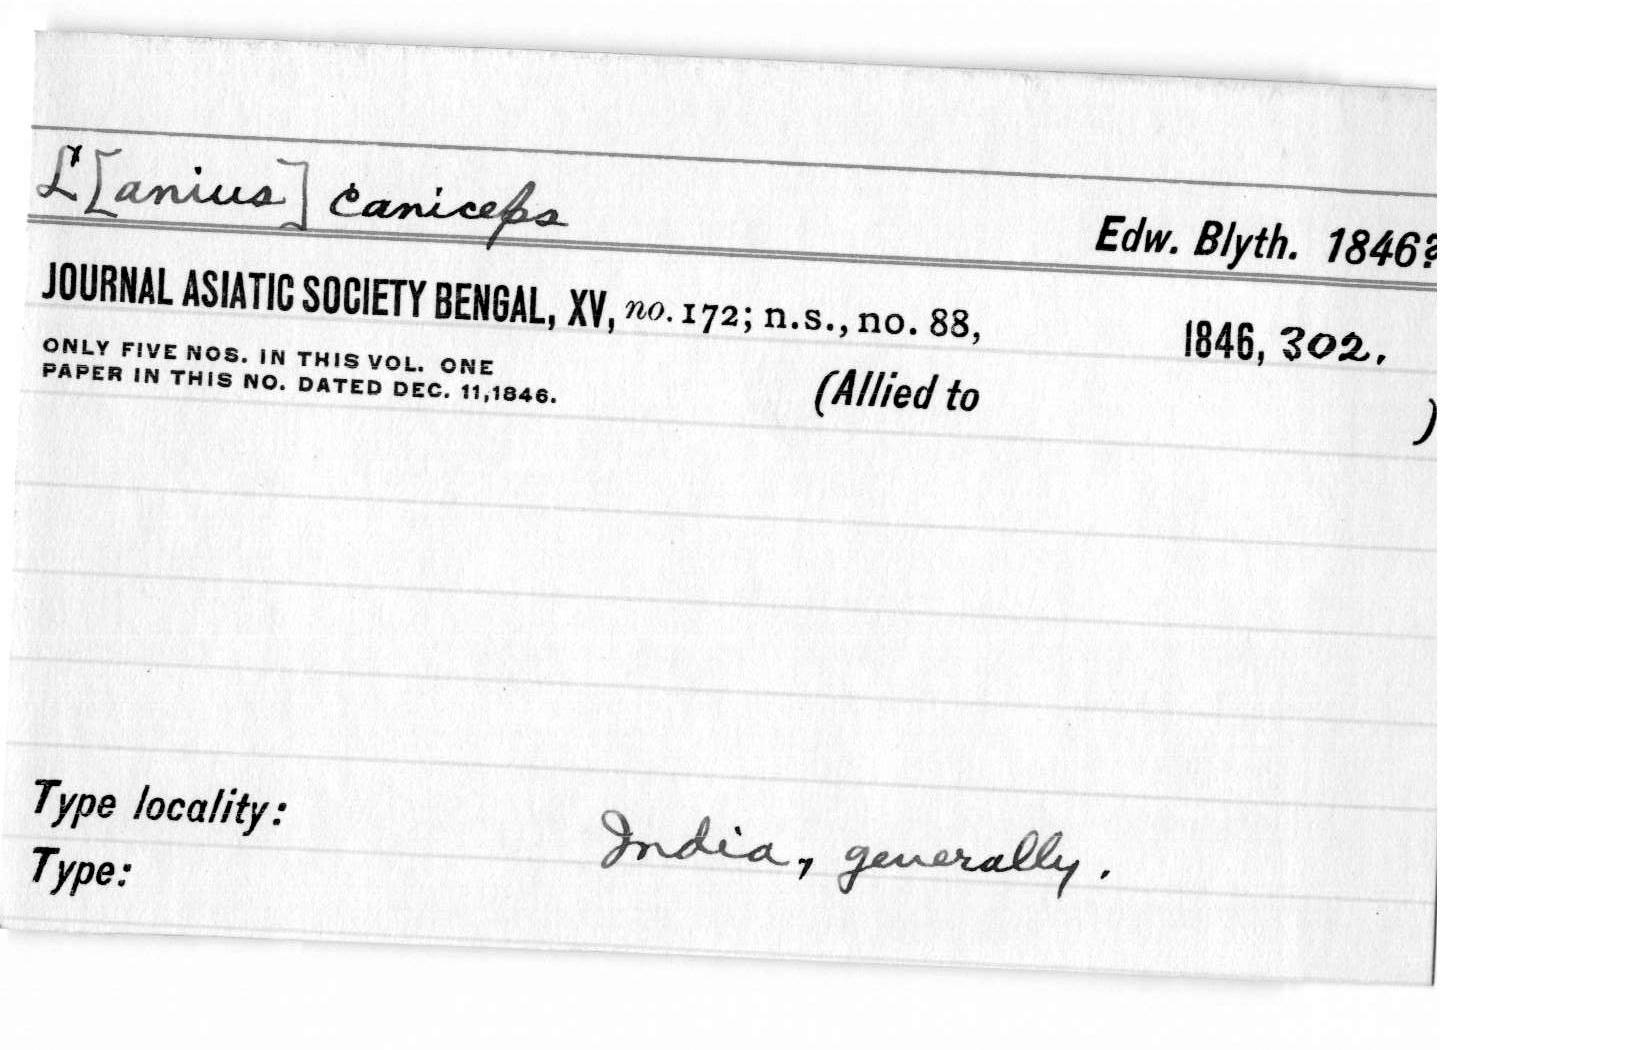 L[anius] caniceps
Edw. Blyth. 1846?
JOURNAL ASIATIC SOCIETY BENGAL, XV, no. 172; n.s., no. 88, 1846, 302.
ONLY FIVE NOS. IN THIS VOL. ONE
PAPER IN THIS NO. DATED DEC. 11, 1846.
(Allied to )
Type locality: India, generally.
Type: